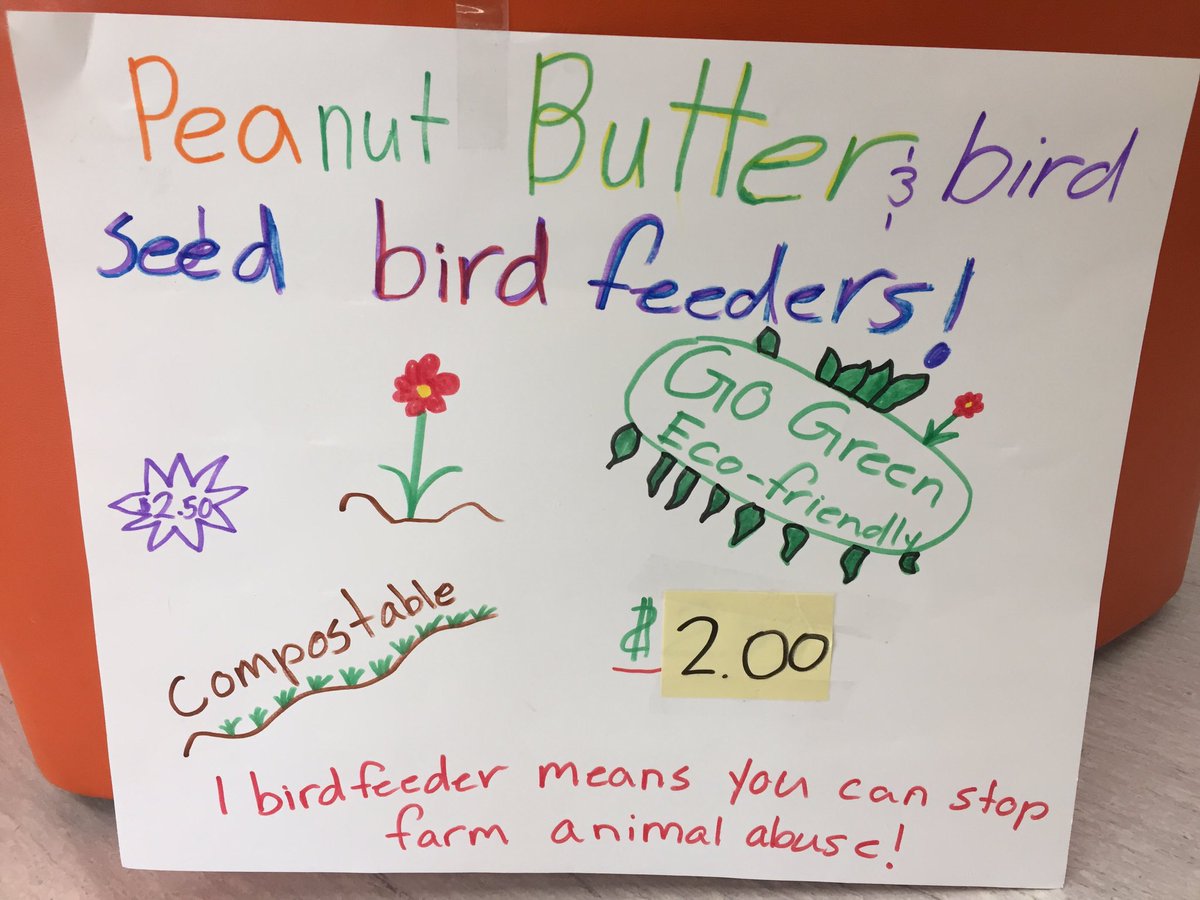 Peanut Butter & bird
seed bird feeders!
Go Green
Eco-friendly
$2.50
Compostable
$ 2.00
1 birdfeeder means you can stop
farm animal abuse!